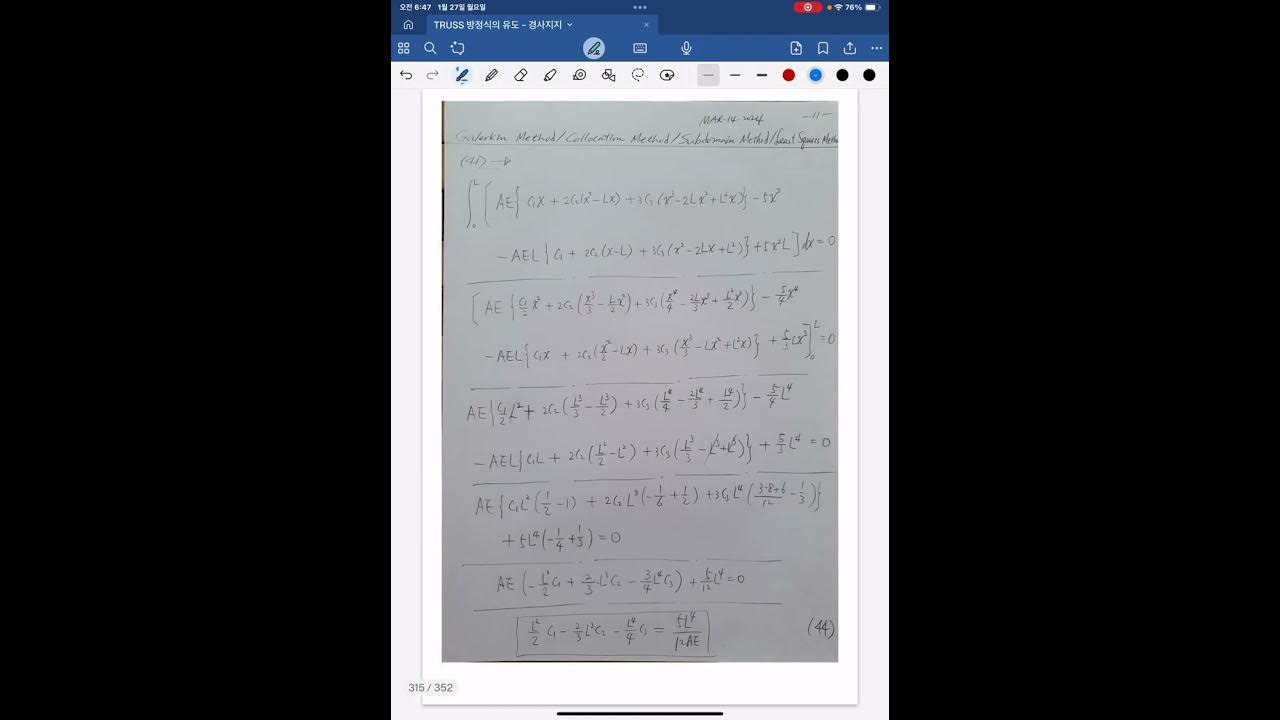 오전 6:47 1월 27일 월요일 76%
TRUSS 방정식의 유도 - 경사지지
MAR-14-2024 -11-
Galerkin Method/Collocation Method/Subdomain Method/Least Squares Metho
(41) →
∫₀ᴸ [ AE{ C₁x + 2C₂(x²-Lx) + 3C₃(x³-2Lx²+L²x)} - 5x³
- AEL{ C₁ + 2C₂(x-L) + 3C₃(x²-2Lx+L²)} + 5x²L ]dx = 0
[ AE {C₁/2 x² + 2C₂(x³/3 - L/2 x²) + 3C₃(x⁴/4 - 2L/3 x³ + L²/2 x²)} - 5/4 x⁴
- AEL{ C₁x + 2C₂(x²/2 - Lx) + 3C₃(x³/3 - Lx² + L²x)} + 5/3 Lx³ ]₀ᴸ = 0
AE{C₁/2 L² + 2C₂(L³/3 - L³/2) + 3C₃(L⁴/4 - 2L⁴/3 + L⁴/2)} - 5/4 L⁴
- AEL{C₁L + 2C₂(L²/2 - L²) + 3C₃(L³/3 - L³ + L³)} + 5/3 L⁴ = 0
AE{C₁L²(1/2 - 1) + 2C₂L³(-1/6 + 1/2) + 3C₃L⁴((3-8+6)/12 - 1/3)}
+ 5L⁴(-1/4 + 1/3) = 0
AE(-L²/2 C₁ + 2/3 L³C₂ - 3/4 L⁴C₃) + 5/12 L⁴ = 0
L²/2 C₁ - 2/3 L³C₂ - L⁴/4 C₃ = 5L⁴/12AE (44)
315 / 352